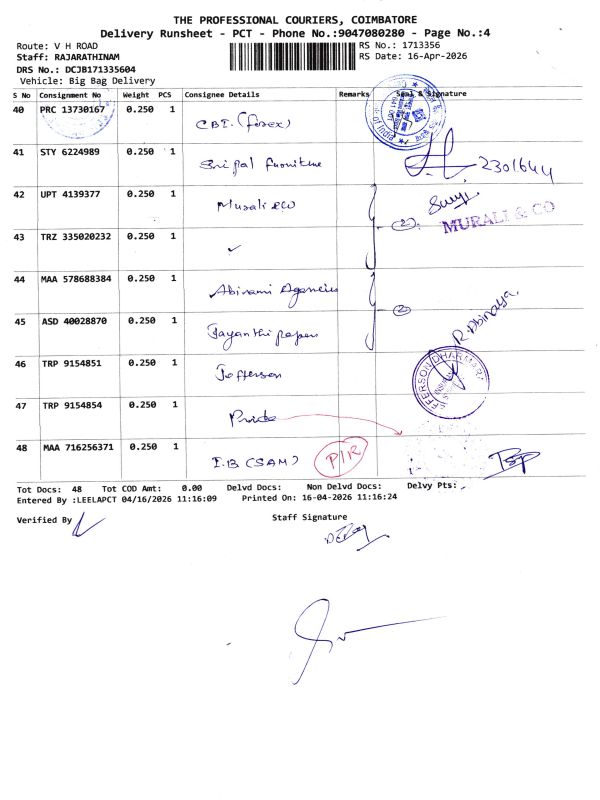 THE PROFESSIONAL COURIERS, COIMBATORE
Delivery Runsheet - PCT - Phone No.:9047080280 - Page No.:4
Route: V H ROAD
RS No.: 1713356
Staff: RAJARATHINAM
RS Date: 16-Apr-2026
DRS No.: DCJB171335604
Vehicle: Big Bag Delivery
S No Consignment No Weight PCS Consignee Details Remarks Seal & Signature
40 PRC 13730167 0.250 1 CBI. (forex)
41 STY 6224989 0.250 1 Sripal furniture 2301644
42 UPT 4139377 0.250 1 Murali &co (2)
MURALI & CO
43 TRZ 335020232 0.250 1 ✓
44 MAA 578688384 0.250 1 Abirami Agencies (2)
45 ASD 40028870 0.250 1 Jayanthi papers R. Abinaya.
46 TRP 9154851 0.250 1 Jefferson
47 TRP 9154854 0.250 1 Pride
48 MAA 716256371 0.250 1 I.B (SAM) P/R
Tot Docs: 48 Tot COD Amt: 0.00 Delvd Docs: Non Delvd Docs: Delvy Pts:
Entered By :LEELAPCT 04/16/2026 11:16:09 Printed On: 16-04-2026 11:16:24
Verified By
Staff Signature